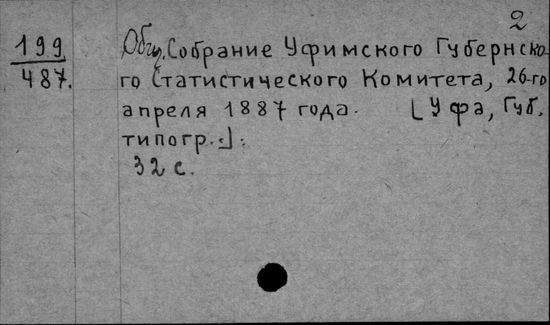 2
199
487.
Общ. Собрание Уфимского Губернско-
го Статистического Комитета, 26-го
апреля 1887 года. [Уфа, Губ.
типогр.].
32 с.